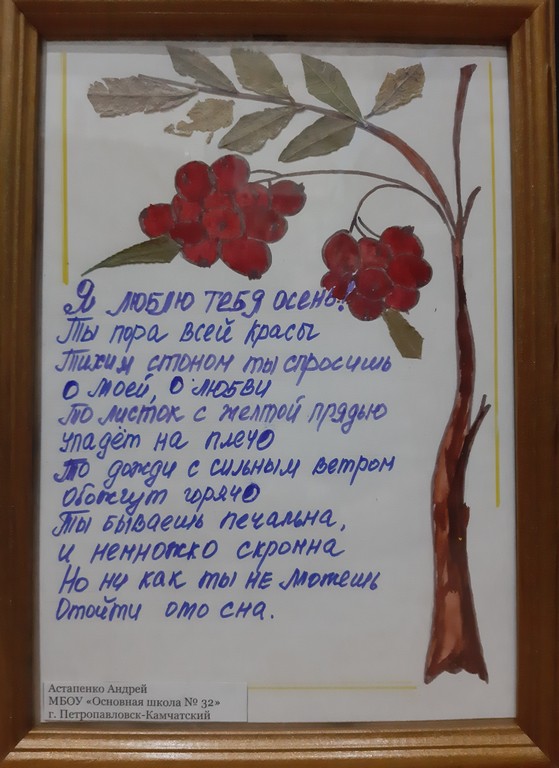 Я люблю тебя осень!
Ты пора всей красы
Тихим стоном ты спросишь
О моей, о любви
То листок с желтой прядью
упадёт на плечо
То дожди с сильным ветром
обожгут горячо
Ты бываешь печальна,
и немножко скромна
Но ни как ты не можешь
Отойти ото сна.
Астапенко Андрей
МБОУ «Основная школа № 32»
г. Петропавловск-Камчатский